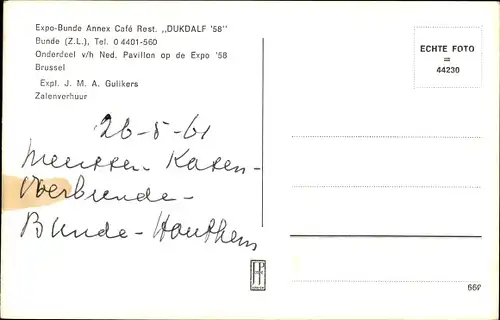 Expo-Bunde Annex Café Rest. „DUKDALF '58"
Bunde (Z.L.), Tel. 0 4401-560
Onderdeel v/h Ned. Pavillon op de Expo '58
Brussel
Expl. J. M. A. Gulikers
Zalenverhuur
ECHTE FOTO
=
44230
26-5-61
Meerssen-Kasen-
Overbunde-
Bunde-Houthem